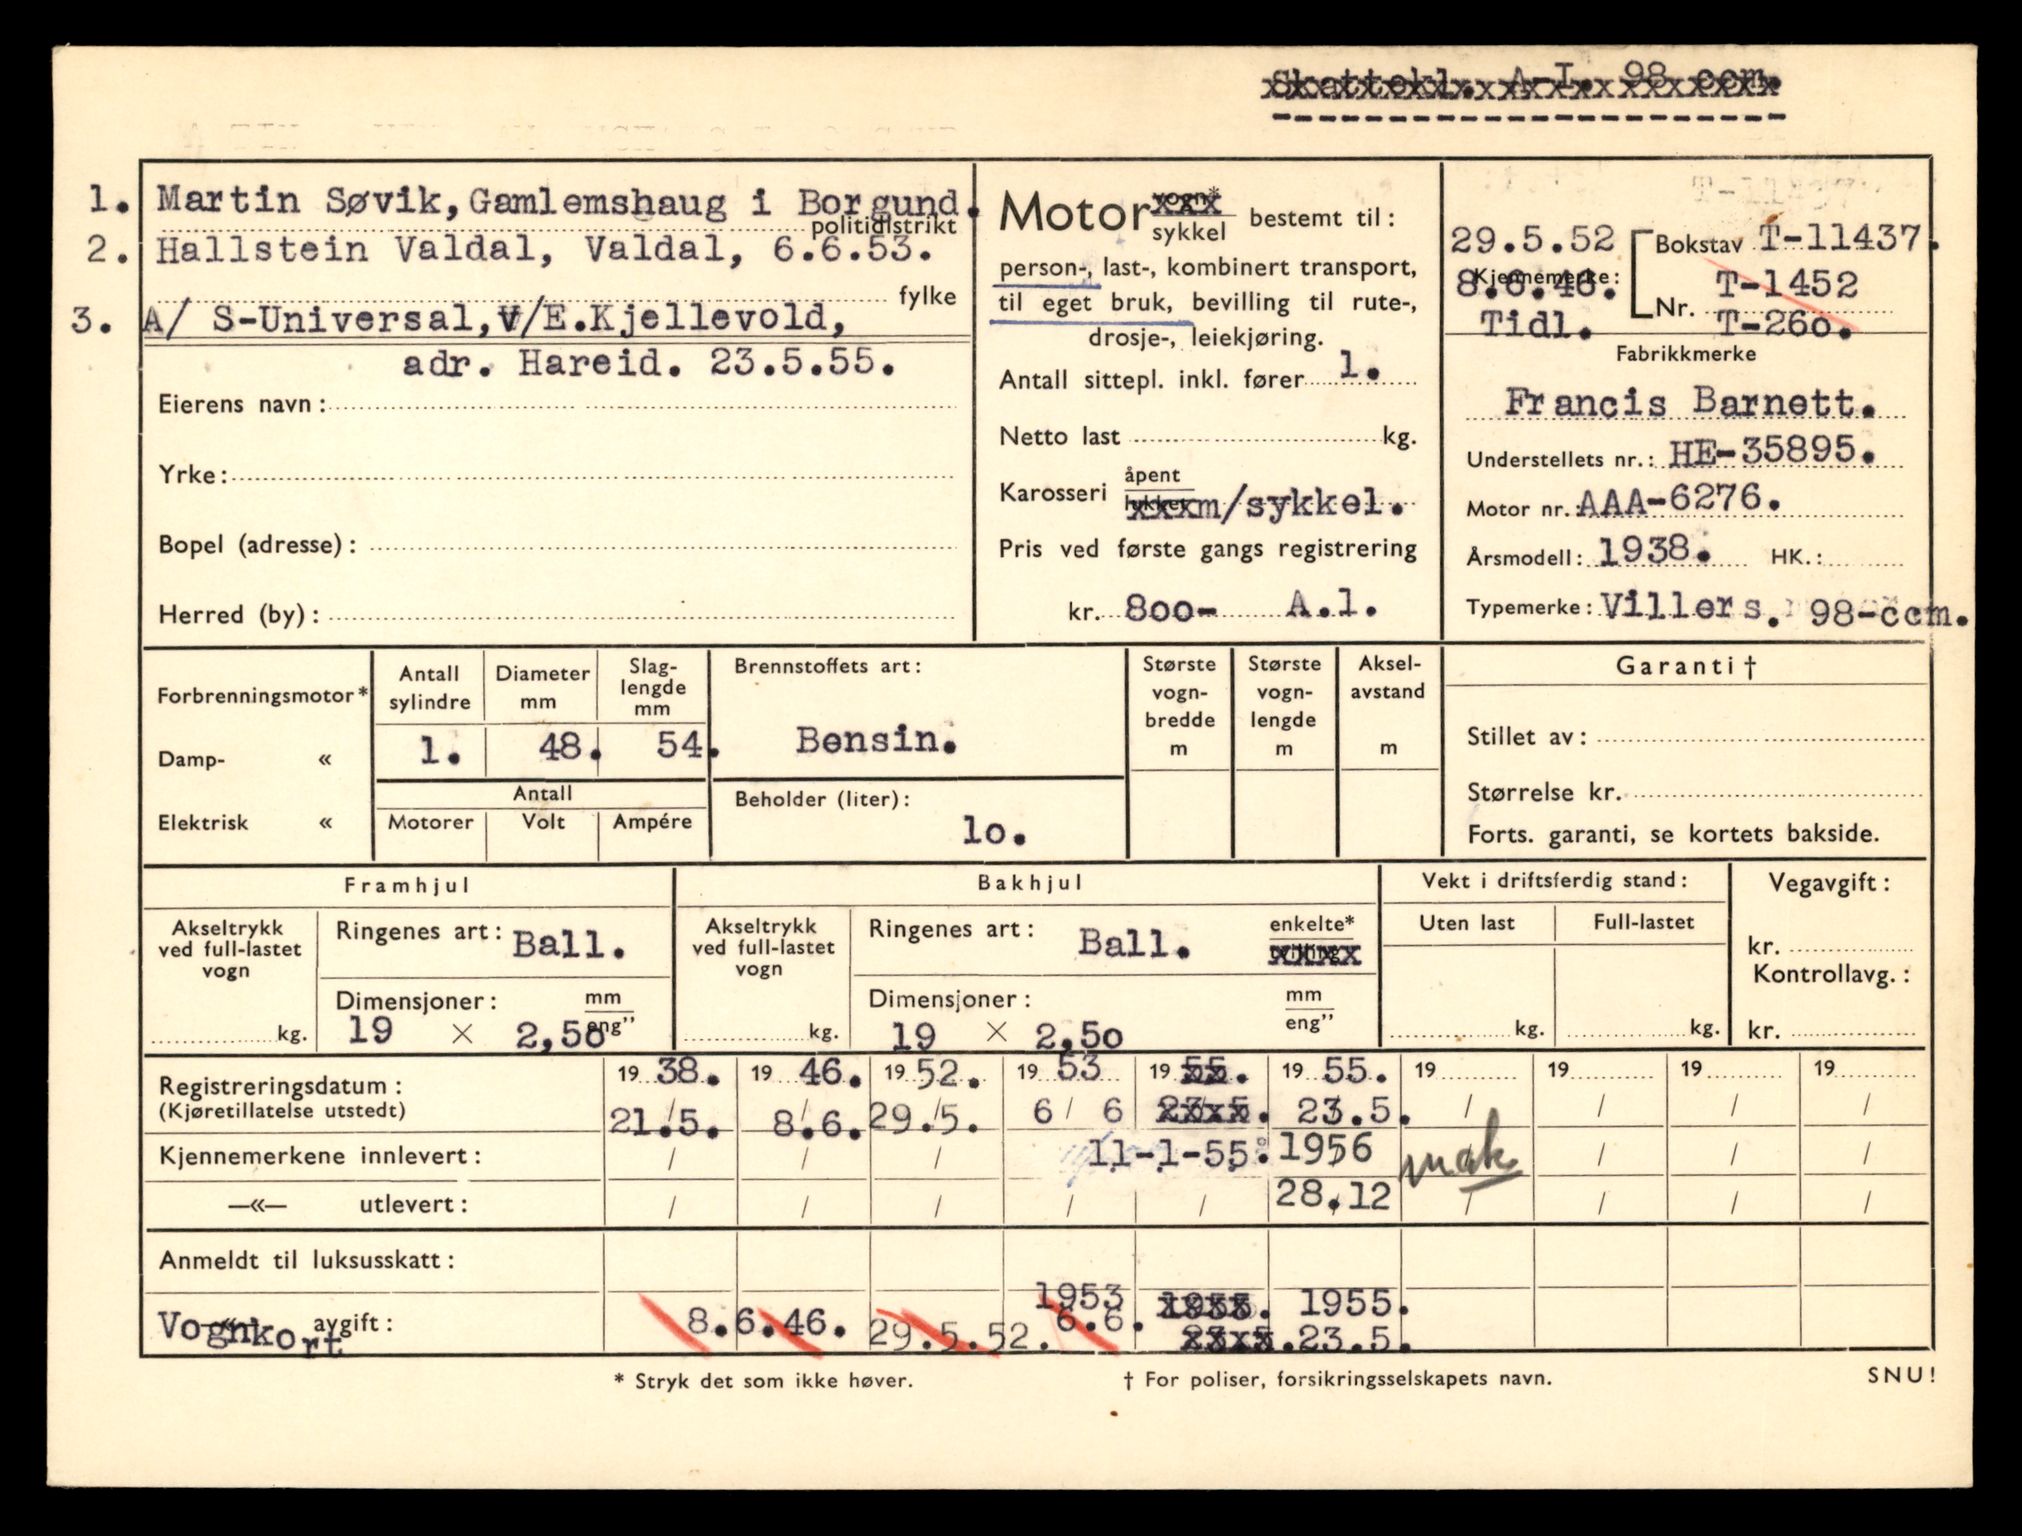 Skattekl. A-I. 98 ccm.
1. Martin Søvik, Gamlemshaug i Borgund.
politidistrikt
2. Hallstein Valdal, Valdal, 6.6.53.
fylke
3. A/ S-Universal, v/E.Kjellevold,
adr. Hareid. 23.5.55.
Eierens navn:
Yrke:
Bopel (adresse):
Herred (by):
Motor vogn* sykkel bestemt til:
person-, last-, kombinert transport,
til eget bruk, bevilling til rute-,
drosje-, leiekjøring.
Antall sittepl. inkl. fører 1.
Netto last kg.
Karosseri åpent lukket m/sykkel.
Pris ved første gangs registrering
kr. 800- A.l.
29.5.52 Bokstav T-11437.
Kjennemerke:
8.6.46. T-1452
Nr.
Tidl. T-26o.
Fabrikkmerke
Francis Barnett.
Understellets nr.: HE-35895.
Motor nr.: AAA-6276.
Årsmodell: 1938. HK.:
Typemerke: Villers. 98-ccm.
Forbrenningsmotor*
Damp- «
Elektrisk «
Antall sylindre
Diameter mm
Slag-lengde mm
1. 48. 54.
Antall
Motorer Volt Ampére
Brennstoffets art:
Bensin.
Beholder (liter):
lo.
Største vogn-bredde m
Største vogn-lengde m
Aksel-avstand m
Garanti †
Stillet av:
Størrelse kr.
Forts. garanti, se kortets bakside.
Framhjul
Akseltrykk ved full-lastet vogn
kg.
Ringenes art: Ball.
Dimensjoner: mm eng”
19 × 2,5o
Bakhjul
Akseltrykk ved full-lastet vogn
kg.
Ringenes art: Ball. enkelte* tvilling
Dimensjoner: mm eng”
19 × 2,5o
Vekt i driftsferdig stand:
Uten last Full-lastet
kg. kg.
Vegavgift:
kr.
Kontrollavg.:
kr.
Registreringsdatum: 19 38. 19 46. 19 52. 19 53 19 55. 19 55. 19 19 19 19
(Kjøretillatelse utstedt) 21.5. 8.6. 29.5. 6 / 6 23.5. 23.5. / / / /
Kjennemerkene innlevert: / / / 11-1-55: 1956 mak / / /
—«— utlevert: / / / / / 28.12 / / / /
Anmeldt til luksusskatt:
1953 1955. 1955.
Vognkort —«— avgift: 8.6.46. 29.5.52. 6.6. 23.5. 23.5.
* Stryk det som ikke høver.
† For poliser, forsikringsselskapets navn.
SNU!